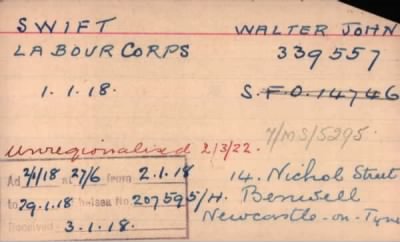 SWIFT WALTER JOHN
LABOUR CORPS 339557
1.1.18. S.F.O.14746
7/MS/5295.
Unregionalised 2/3/22.
Ad 2/1/18 at 27/6 from 2.1.18
to 29.1.18 Chelsea No. 207595/H.
Received 3.1.18.
14. Nichol Street
Benwell
Newcastle-on-Tyne